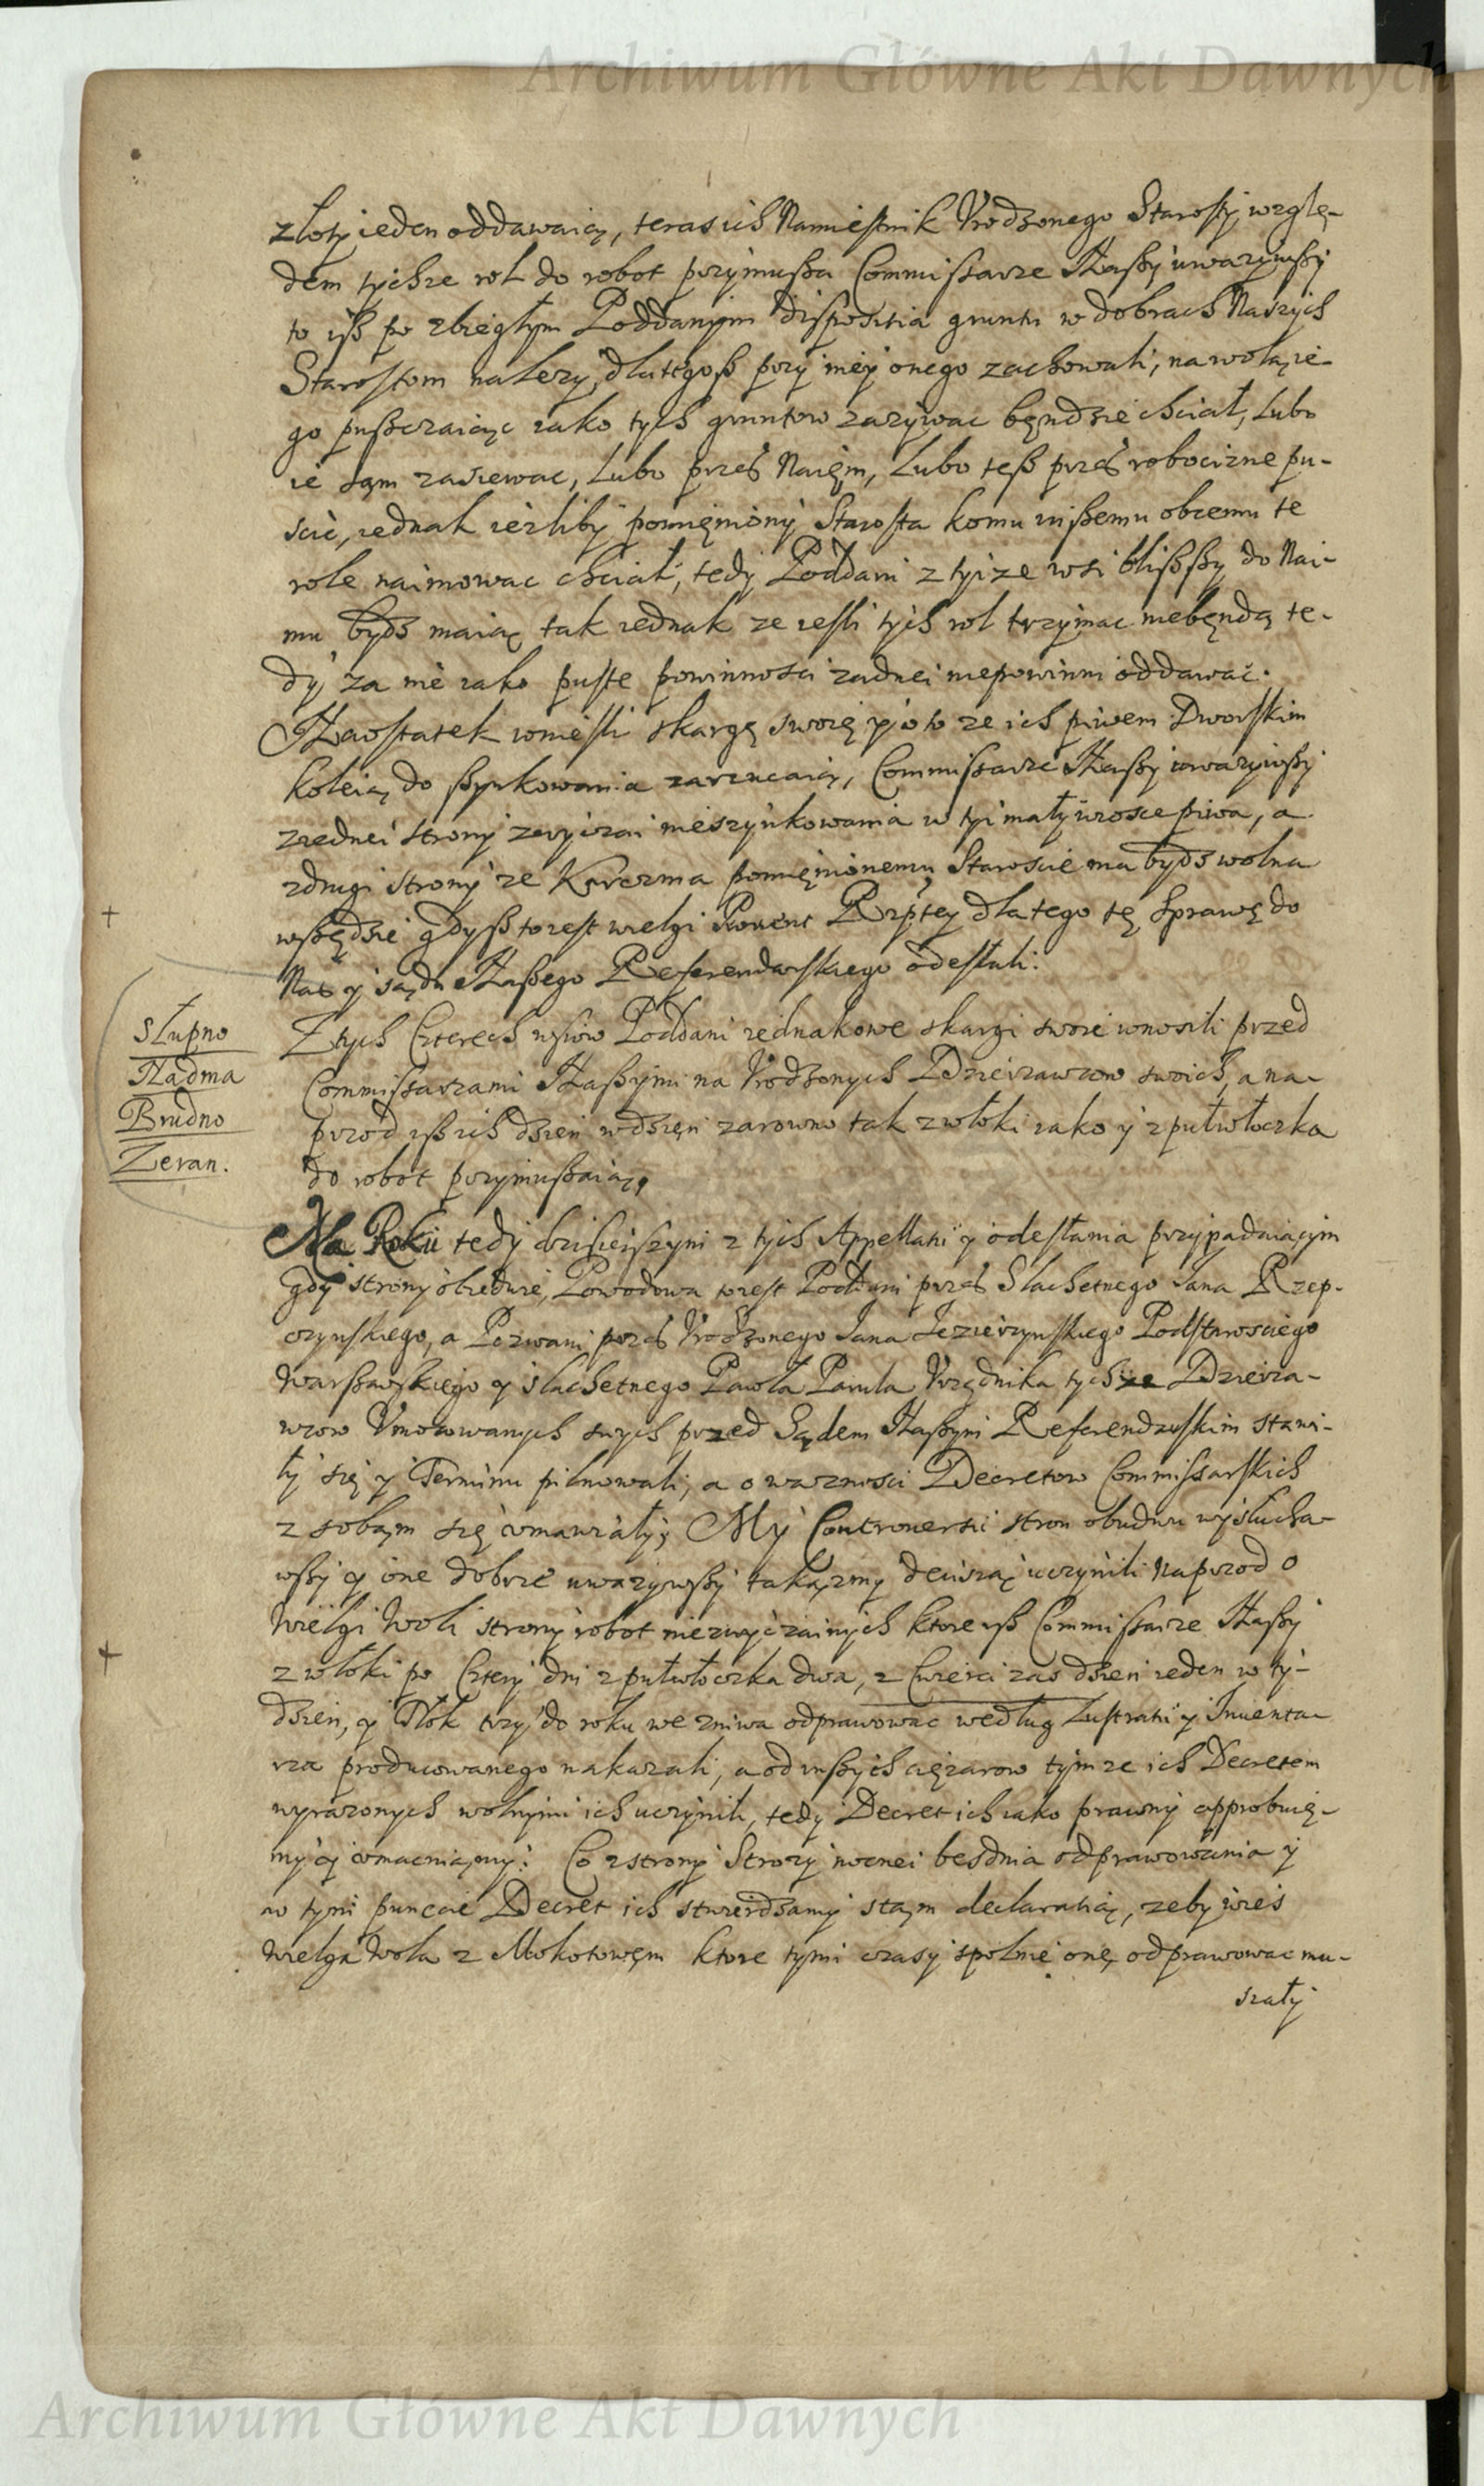 Archiwum Główne Akt Dawnych
złoty ieden oddawaią, teras ich Namiestnik Vrodzonego Starosty wzglę-
dem tychze rol do robot przymusza Commissarze Naszy uwazywszy
to isz po zbiegłym Poddanym dispositia gruntu w dobrach Naszych
Starostom nalezy, dlategosz przy niey onego zachowali, na wolą ie-
go puszczaiąc iako tych gruntow zazywac bęndzie chciał, Lubo
ie sąm zasiewac, Lubo przes Naięm, Lubo tesz przes robocizne pu-
scic, iednak iezliby pomięniony Starosta komu inszemu obcemu te
role naimowac chciał, tedy Poddani z tyize wsi blisszy do Nai-
mu bydz maią tak iednak ze iesli tych rol trzymac niebęndą te-
dy za nie iako puste powinnosci zadnei niepowinni oddawac.
Naostatek wniesli skargę swoię y o to ze ich piwem Dworskim
koleią do szynkowania zarzucaią, Commissarze Naszy uwazywszy
z iednei strony zwyczai nieszynkowania w tyi mały wiosce piwa, a
z drugi strony ze Karczma pomięnionemu Staroscie ma bydz wolna
wszędzie gdysz to iest wielgi Prouent Rzptey dla tego tę sprawę do
Nas y sądu Naszego Referendarskiego odesłali.
Słupno
Nadma
Brudno
Zeran.
Z tych Czterech wsiow Poddani iednakowe skargi swoie wnosili przed
Commissarzami Naszymi na Vrodzonych Dzierzawcow swoich, a na-
przod isz ich dzien wdzięn zarowno tak z włoki iako y z pułwłoczka
do robot przymuszaią,
Na Roku tedy dzisieiszym z tych Appellatii y odesłania przypadaiącym
gdy strony obiedwie, Powodowa to iest Poddani przes Slachetnego Jana Rzep-
czynskiego, a Pozwani przes Vrodzonego Jana Jezierzynskiego Podstarosciego
Warszawskiego y slachetnego Pawła Parula Vrzędnika tychze Dzierza-
wcow Vmocowanych swych przed Sądem Naszym Referendarskim stawi-
ły się y Terminu pilnowali, a o waznosci Decretow Commissarskich
z sobąm się vmawiały, My Controuersii stron obudwu wysłucha-
wszy y one dobrze uwazywszy takązmy decisią uczynili Naprzod o
Wielgi Woli strony robot niezwyczainych ktore isz Commissarze Naszy
z włoki po Cztery dni z pułwłoczka dwa, z Cwierci zas dzien ieden w ty-
dzien, y Tłok trzy do roku we zniwa odprawowac według Lustratii y Inuenta-
rza producowanego nakazali, a od inszych cięzarow tymze ich Decretem
wyrazonych wolnymi ich uczynili, tedy Decret ich iako prawny approbuię-
my y vmacniąmy. Co z strony Strozy nocnei besdnia odprawowania y
w tymi puncie Decret ich stwierdzamy stąm declaratią, zeby wies
Wielga Wola z Mokotowęm ktore tymi czasy spolnie onę odprawowac mu-
siały
Archiwum Główne Akt Dawnych